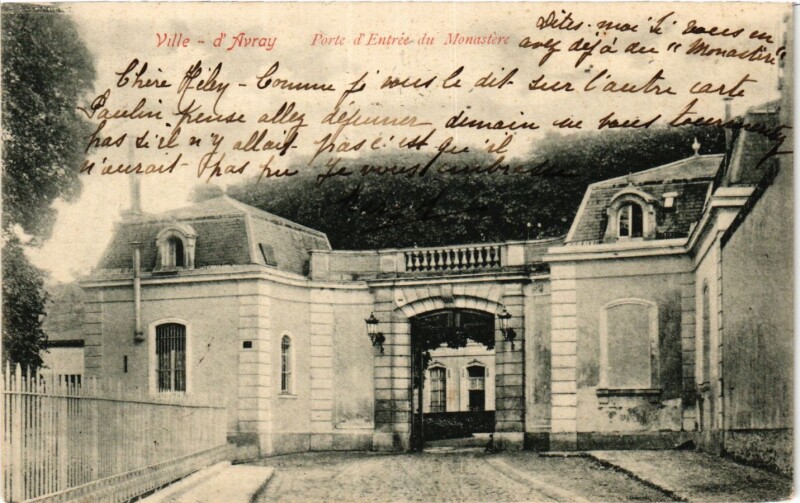 Ville - d'Avray Porte d'Entrée du Monastère
Dites-moi si vous en
avez déjà du "Monastère"
Chère Hély - Comme je vous le dit sur l'autre carte
Paulin pense allez déjeuner demain ne vous tourmentez
pas s'il n'y allait pas c'est qu'il
n'aurait pas pu Je vous embrasse